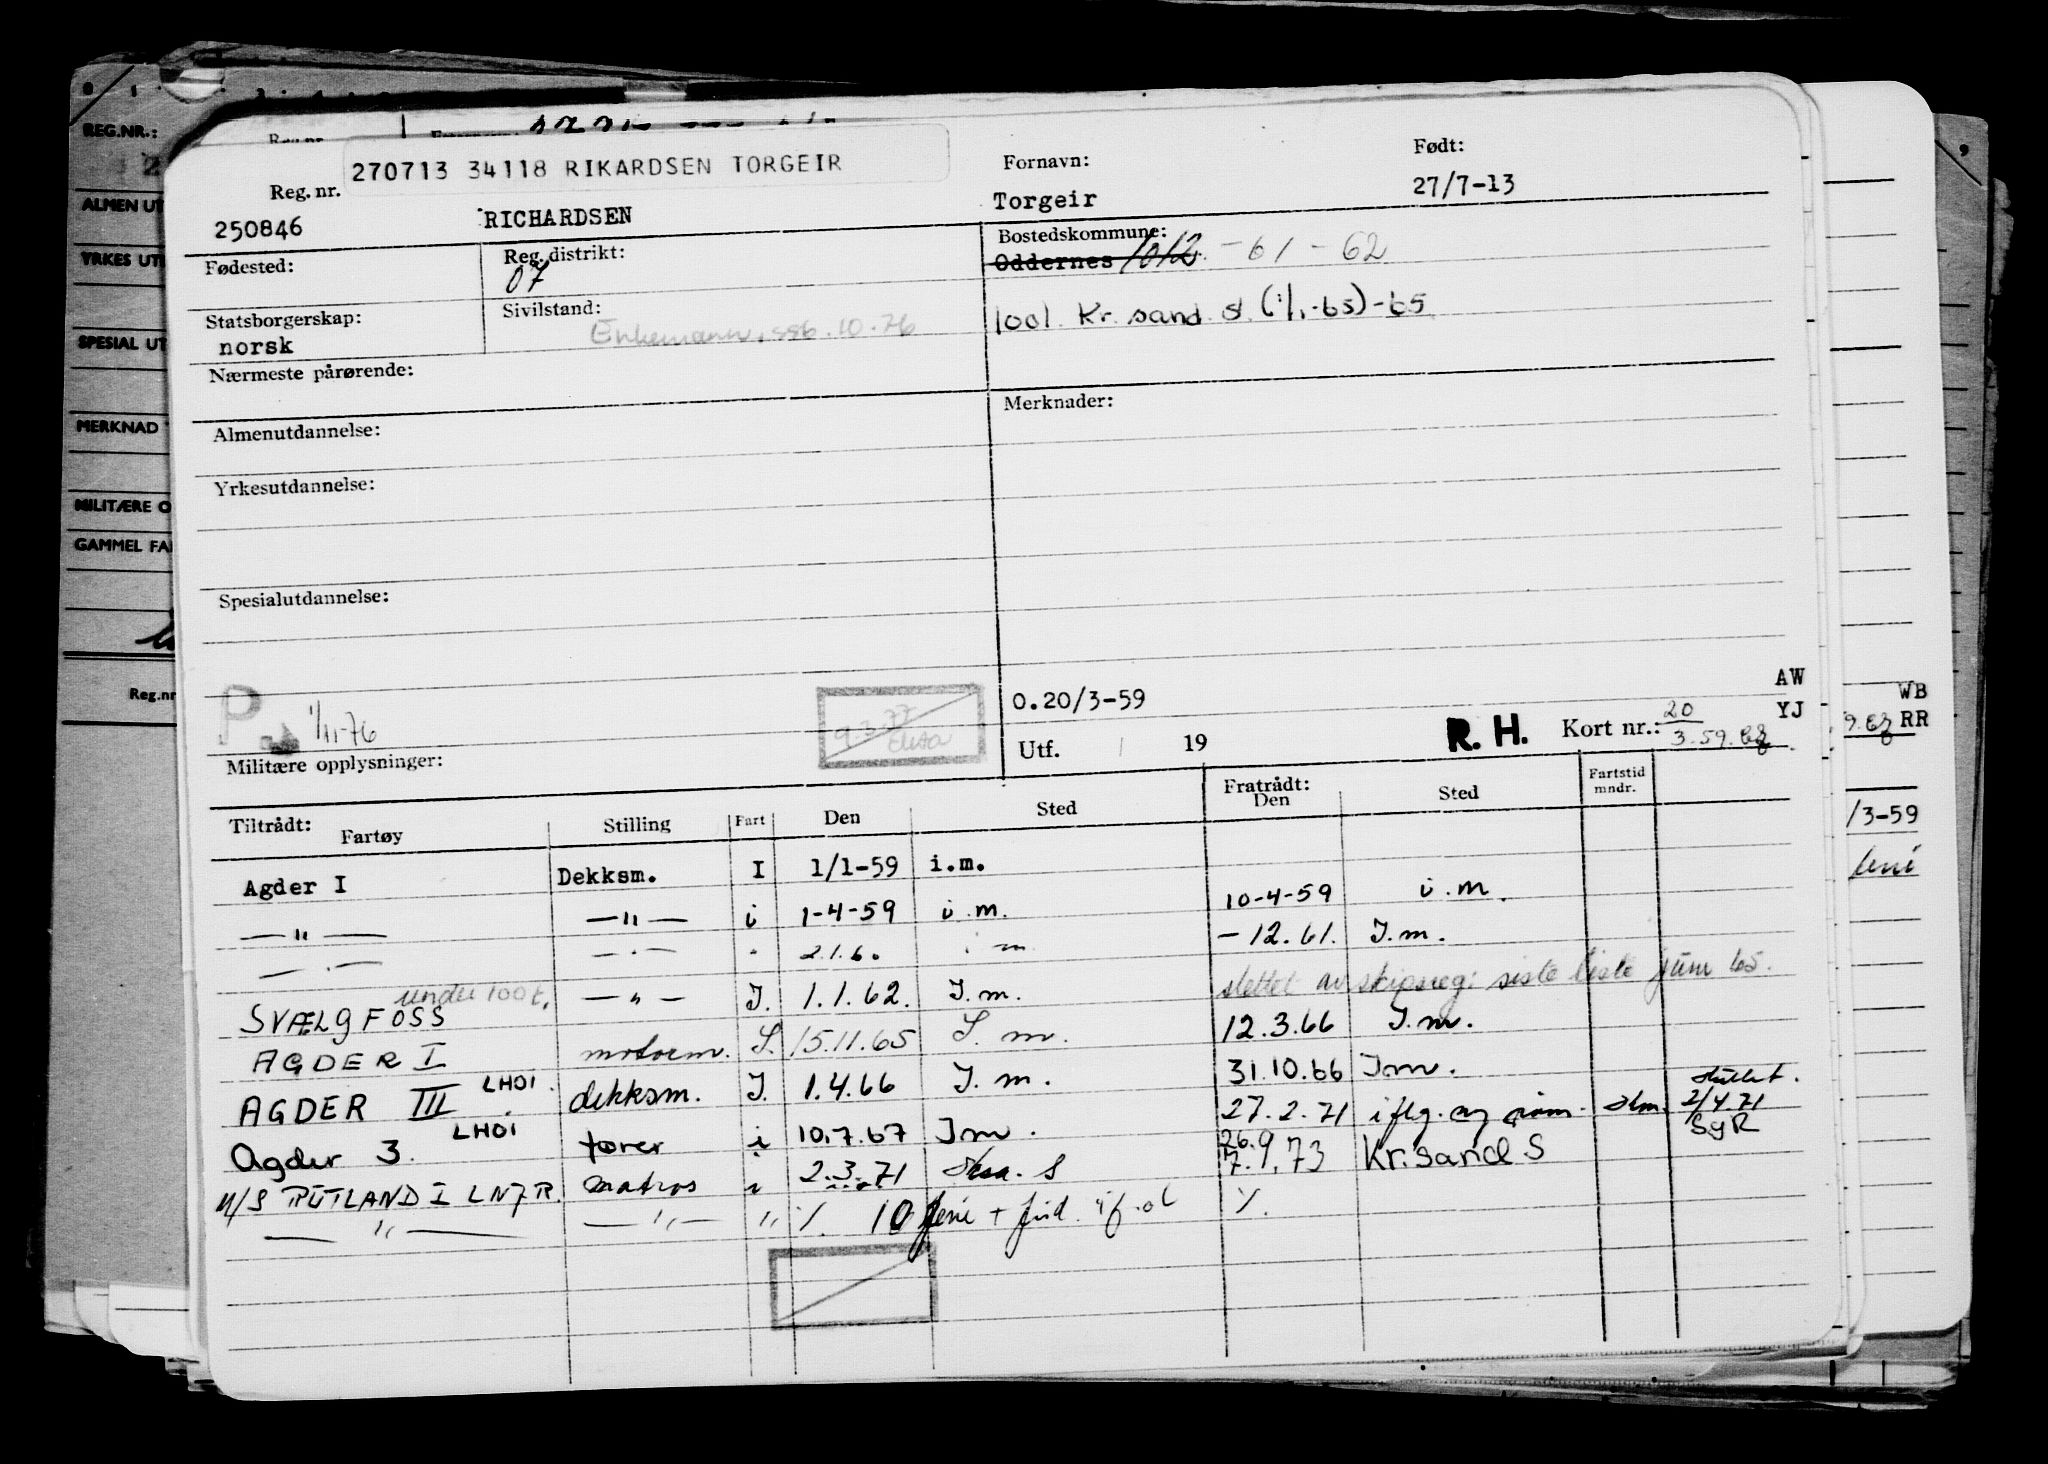 REG.NR.:
ALMEN UT
YRKES UT
SPESIAL UT
MERKNAD
MILITÆRE O
GAMMEL FA
Reg.nr
270713 34118 RIKARDSEN TORGEIR
Reg. nr.
Fornavn:
Født:
250846 RICHARDSEN Torgeir 27/7-13
Fødested:
Reg. distrikt:
07
Bostedskommune:
Oddernes 1012 - 61 - 62
Statsborgerskap:
norsk
Sivilstand:
Enkemann, ss6.10.76
1001. Kr. sand. S. (1/1-65)-65
Nærmeste pårørende:
Merknader:
Almenutdannelse:
Yrkesutdannelse:
Spesialutdannelse:
P. 1/11-76
9.3.77
O.20/3-59
AW
YJ
Militære opplysninger:
Utf. 19
R. H. Kort nr.: 20
3.59.
WB
RR
Tiltrådt: Fartøy Stilling Fart Den Sted Fratrådt: Den Sted Fartstid mndr.
Agder I Dekksm. I 1/1-59 i.m.
— " — — " — i 1-4-59 i.m. 10-4-59 i.m.
— . — — . — " 2.1.6. i m - 12.61. I.m.
SVÆLGFOSS under 100t. — " — I. 1.1.62. I.m. slettet av skipsreg: siste liste juni 65.
AGDER I motorm. S. 15.11.65 S. m. 12.3.66 I.m.
AGDER III LHOI. dekksm. I. 1.4.66 I.m. 31.10.66 Im.
Agder 3. LHOI fører i 10.7.67 Im. 27.2.71 iflg. slm. 2/4.71 SyR
M/S RUTLAND I LNJR. matros i 2.3.71 S 26.9.73 Kr.sand S
— " — — " — " % 10 %.
/3-59